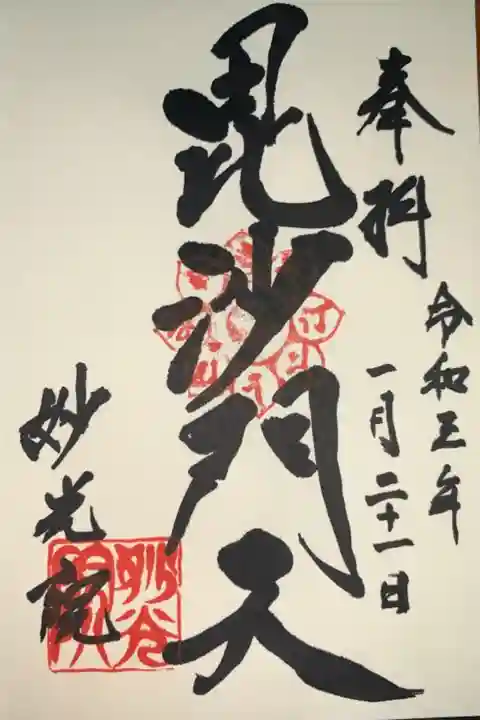 奉拝
令和五年
一月二十一日
毘沙門天
妙光院
妙光院